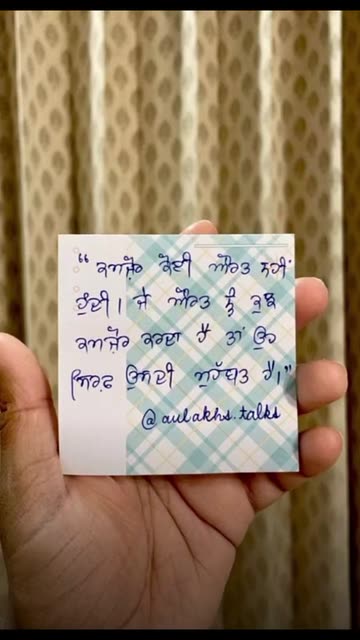 “ ਕਮਜ਼ੋਰ ਕੋਈ ਔਰਤ ਨਹੀਂ
ਹੁੰਦੀ। ਜੇ ਔਰਤ ਨੂੰ ਕੁਝ
ਕਮਜ਼ੋਰ ਕਰਦਾ ਹੈ ਤਾਂ ਉਹ
ਸਿਰਫ਼ ਉਸਦੀ ਮੁਹੱਬਤ ਹੈ।”
@aulakhs.talks